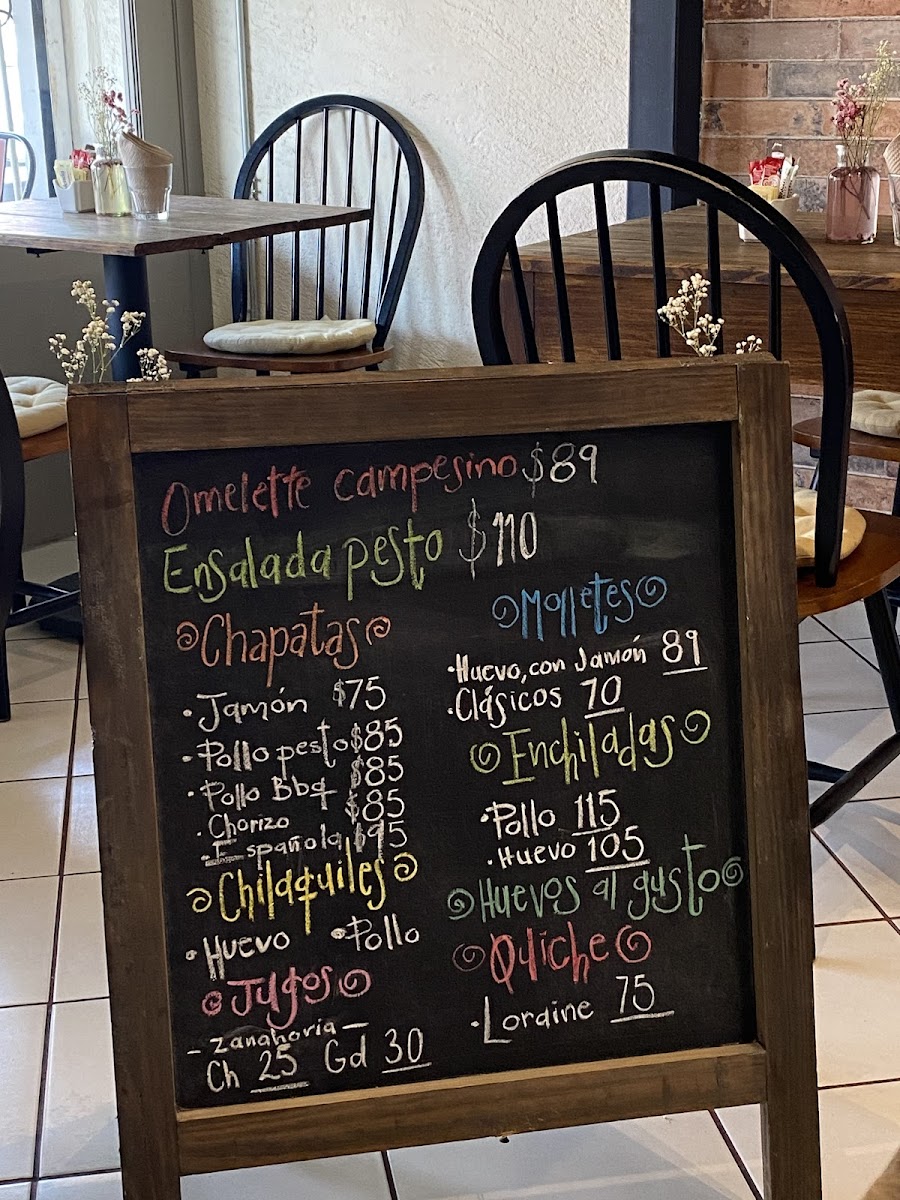 Omelette campesino $89
Ensalada pesto $110
Chapatas
• Jamón $75
• Pollo pesto $85
• Pollo Bbq $85
• Chorizo $85
- Española $95
Chilaquiles
• Huevo • Pollo
Jugos
- Zanahoria -
Ch 25 Gd 30
Molletes
• Huevo, con Jamón 89
• Clásicos 70
Enchiladas
• Pollo 115
• Huevo 105
Huevos al gusto
Quiche
• Loraine 75